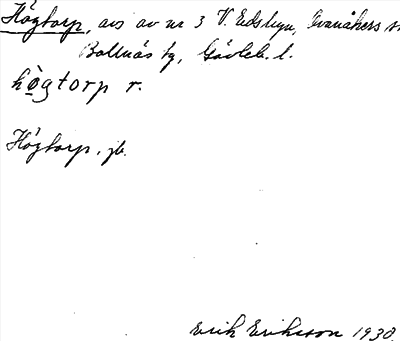 Högtorp, avs av nr 3 V. Edsbyn, Ovanåkers sn
Bollnäs tg, Gävleb. l.
hògtorp r.
Högtorp, jb.
Erik Eriksson 1930.